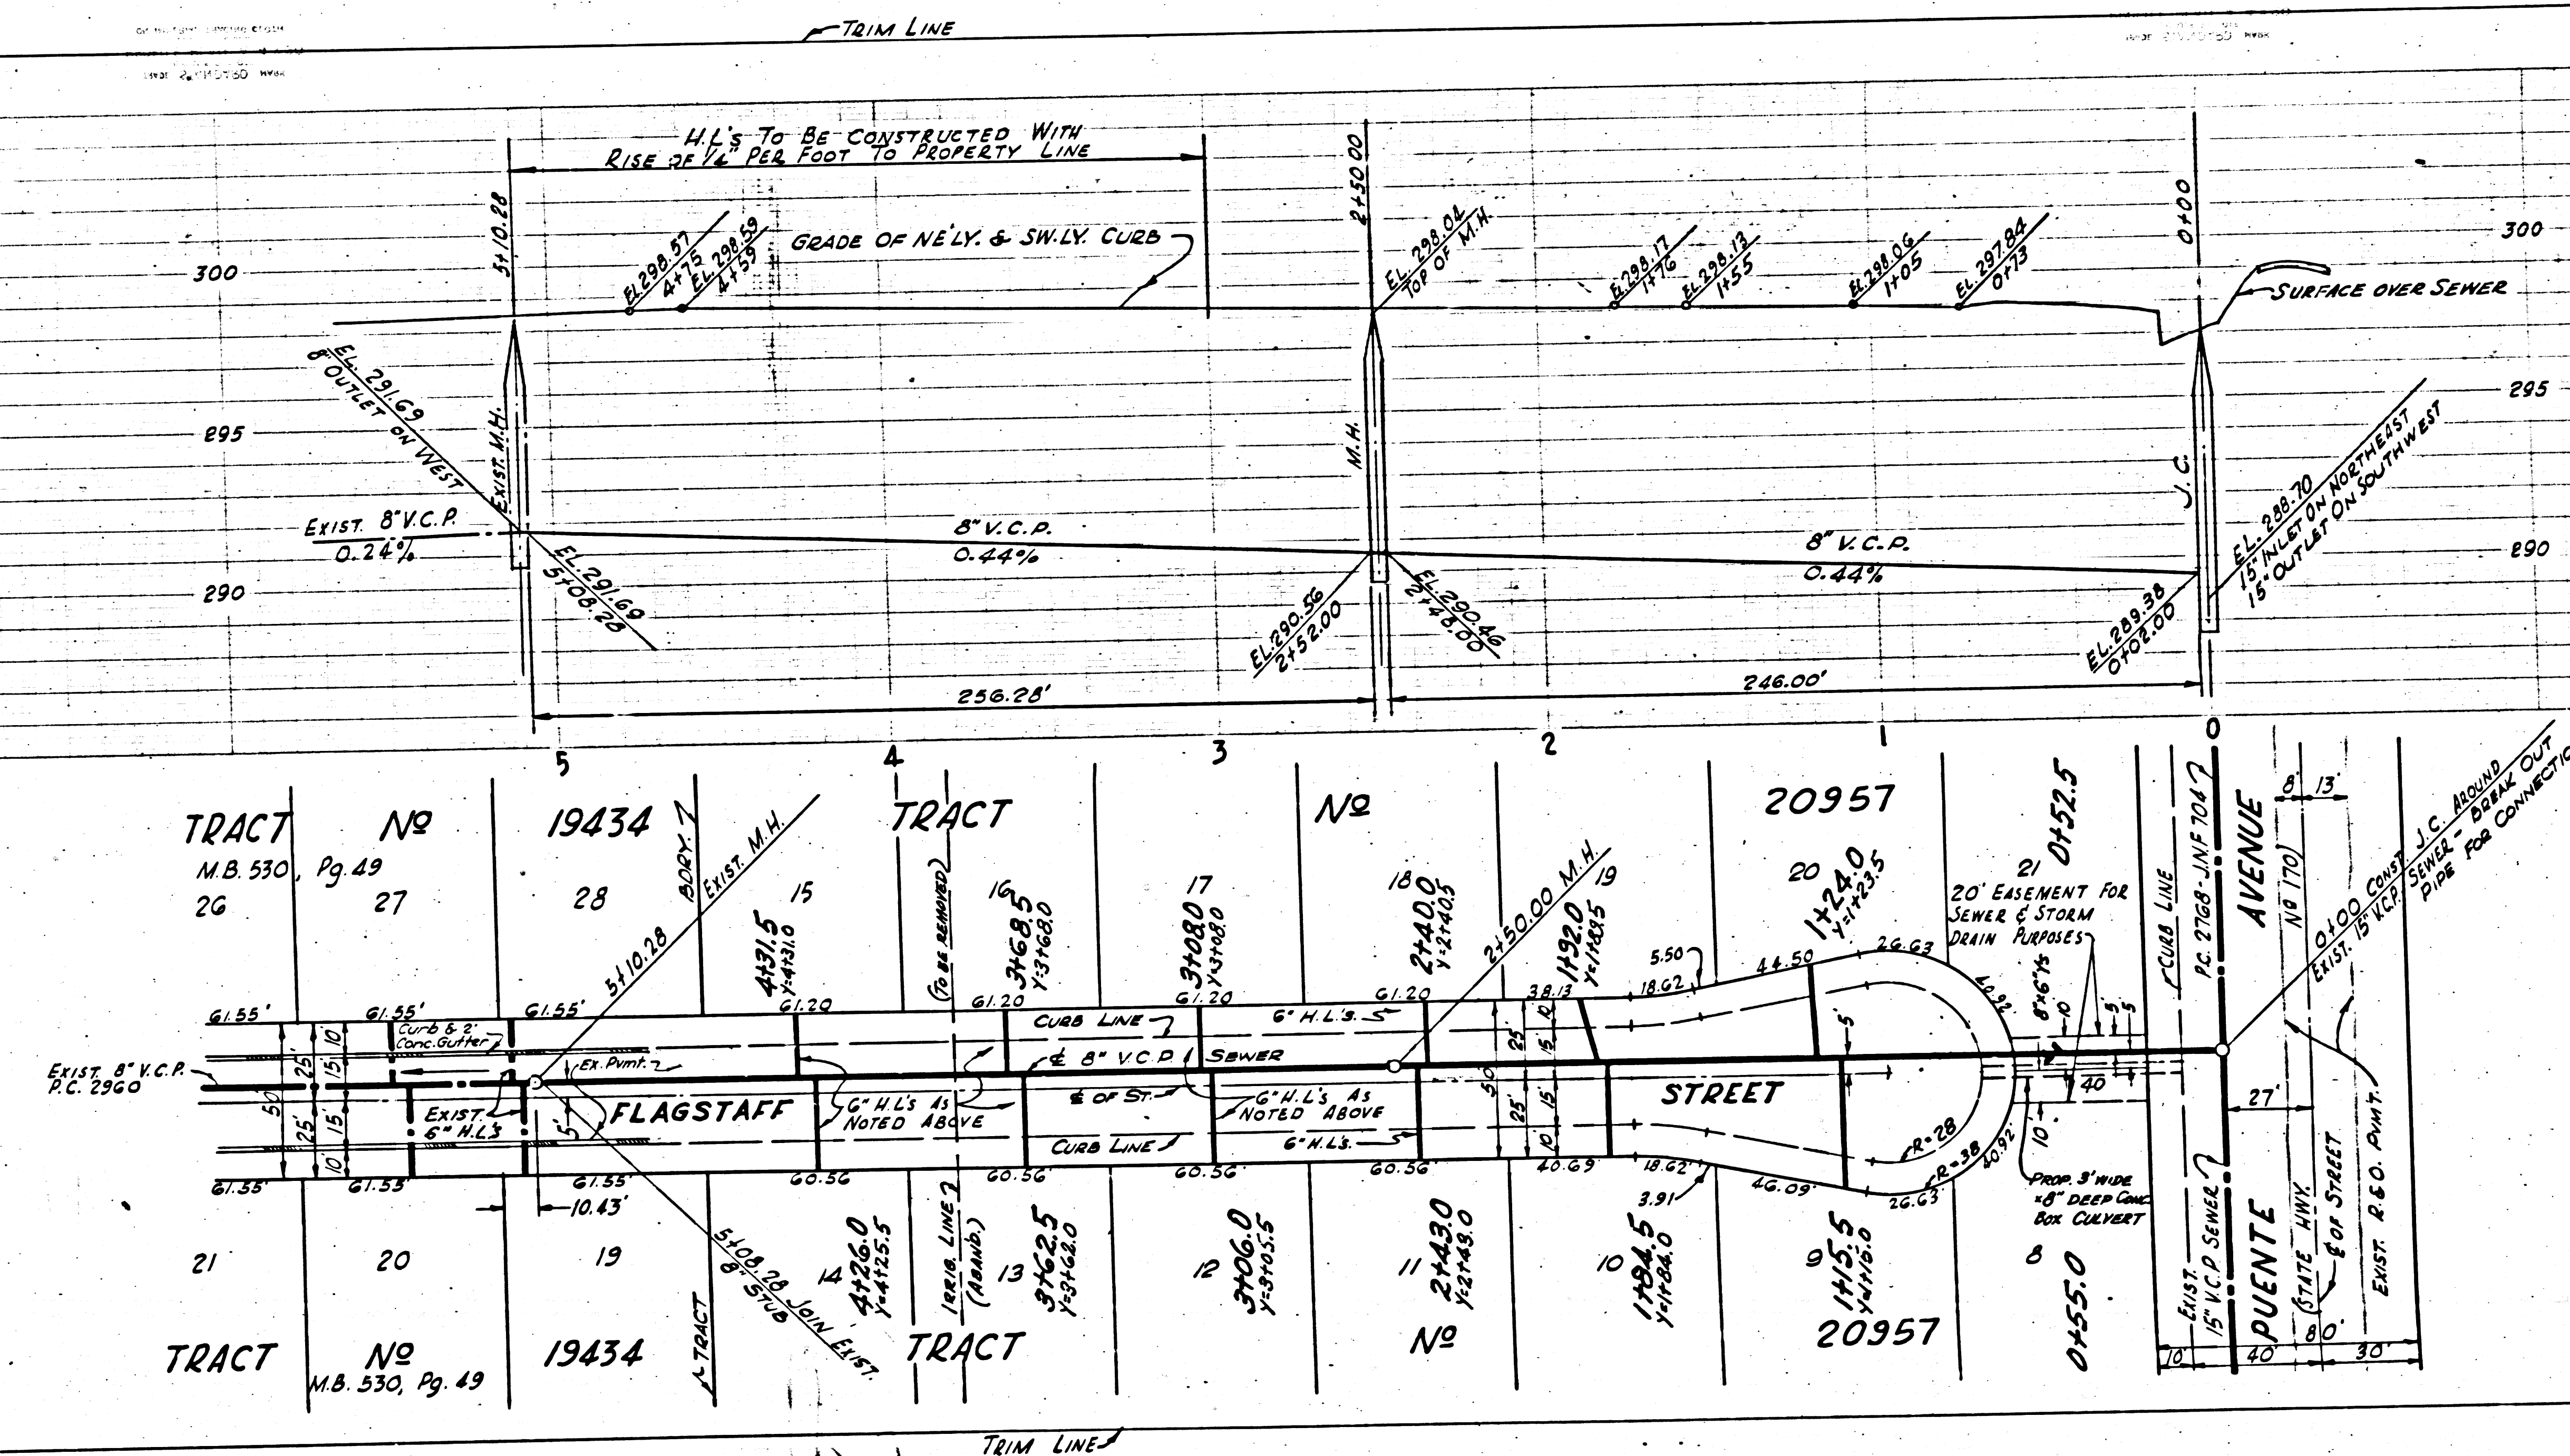 TRIM LINE
H.L'S TO BE CONSTRUCTED WITH
RISE OF 1/4" PER FOOT TO PROPERTY LINE
5+10.28
2+50.00
0+00
300
300
EL. 298.57
4+75
EL. 298.59
4+59
GRADE OF NE'LY. & SW.LY. CURB
EL. 298.04
TOP OF M.H.
EL. 298.17
1+76
EL. 298.13
1+55
EL. 298.06
1+05
EL. 297.84
0+73
SURFACE OVER SEWER
EL. 291.69
8" OUTLET ON WEST
EXIST. M.H.
M.H.
J.C.
295
295
EL. 288.70
15" INLET ON NORTHEAST
15" OUTLET ON SOUTHWEST
EXIST. 8" V.C.P.
0.24%
8" V.C.P.
0.44%
8" V.C.P.
0.44%
290
290
EL. 291.69
5+08.28
EL. 290.56
2+52.00
EL. 290.46
2+48.00
EL. 289.38
0+02.00
256.28'
246.00'
5
4
3
2
1
0
TRACT Nº 19434
M.B. 530, Pg. 49
BDRY.
EXIST. M.H.
5+10.28
TRACT Nº 20957
26
27
28
15
16
17
18
19
20
21
4+31.5
Y=4+31.0
(TO BE REMOVED)
3+68.5
Y=3+68.0
3+08.0
Y=3+08.0
2+40.0
Y=2+40.5
2+50.00 M.H.
1+92.0
Y=1+89.5
1+24.0
Y=1+23.5
0+52.5
20' EASEMENT FOR
SEWER & STORM
DRAIN PURPOSES
CURB LINE
P.C. 2768-J.N.F 704
AVENUE
Nº 170)
8'
13'
0+00 CONST. J.C. AROUND
EXIST. 15" V.C.P. SEWER - BREAK OUT
PIPE FOR CONNECTIO
61.55'
61.55'
61.55'
61.20
61.20
61.20
61.20
38.13
18.62
5.50
44.50
26.63
40.92
8"x6" Ys
10'
5'
5'
Curb & 2'
Conc. Gutter
Ex. Pvmt.
CURB LINE
6" H.L'S.
℄ 8" V.C.P. SEWER
EXIST. 8" V.C.P.
P.C. 2960
50'
25'
25'
10'
15'
15'
10'
EXIST.
6" H.L'S
5'
FLAGSTAFF
6" H.L'S AS
NOTED ABOVE
℄ OF ST.
6" H.L'S AS
NOTED ABOVE
CURB LINE
6" H.L'S.
50'
25'
25'
10'
15'
15'
10'
STREET
5'
R=28
R=38
40.92'
40
10'
27'
61.55'
61.55'
61.55'
10.43'
60.56
60.56'
60.56'
60.56'
40.69
18.62'
3.91
46.09'
26.63'
PROP. 3' WIDE
x8" DEEP CONC.
BOX CULVERT
21
20
19
14
13
12
11
10
9
8
5+08.28 JOIN EXIST.
8" STUB
4+26.0
Y=4+25.5
IRRIG. LINE
(ABAND.)
3+62.5
Y=3+62.0
3+06.0
Y=3+05.5
2+43.0
Y=2+43.0
1+84.5
Y=1+84.0
1+15.5
Y=1+15.0
0+55.0
EXIST.
15" V.C.P. SEWER
PUENTE
(STATE HWY.
℄ OF STREET
EXIST. R.&O. PVMT.
TRACT Nº 19434
M.B. 530, Pg. 49
TRACT
TRACT Nº 20957
10'
40'
80'
30'
TRIM LINE